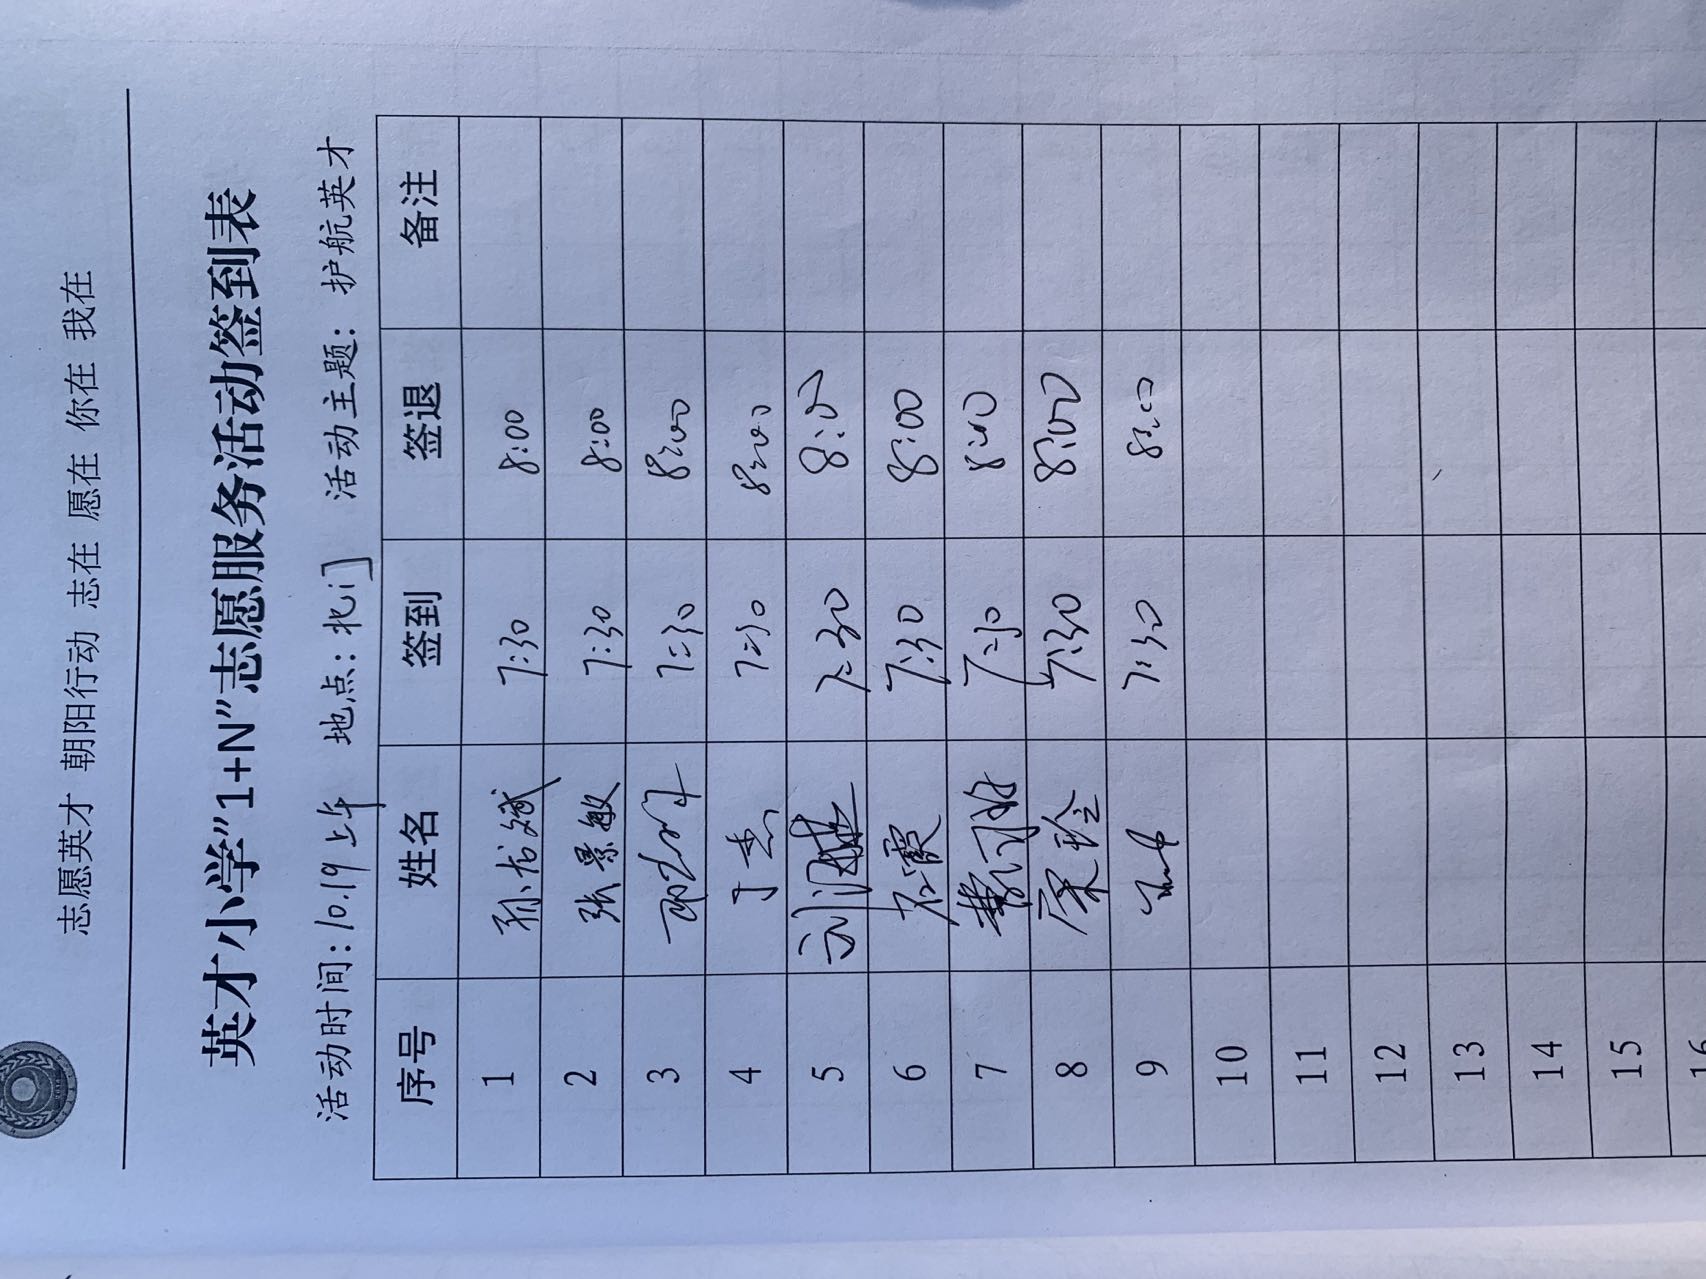 志愿英才 朝阳行动 志在 愿在 你在 我在
英才小学"1+N"志愿服务活动签到表
活动时间:10.19上午 地点:北门 活动主题:护航英才
序号 姓名 签到 签退 备注
1 孙书斌 7:30 8:00
2 张景敏 7:30 8:00
3 7:30 8:00
4 丁杰 7:30 8:00
5 刘 7:30 8:00
6 石霞 7:30 8:00
7 7:30 8:00
8 7:30 8:00
9 7:30 8:00
10
11
12
13
14
15
16